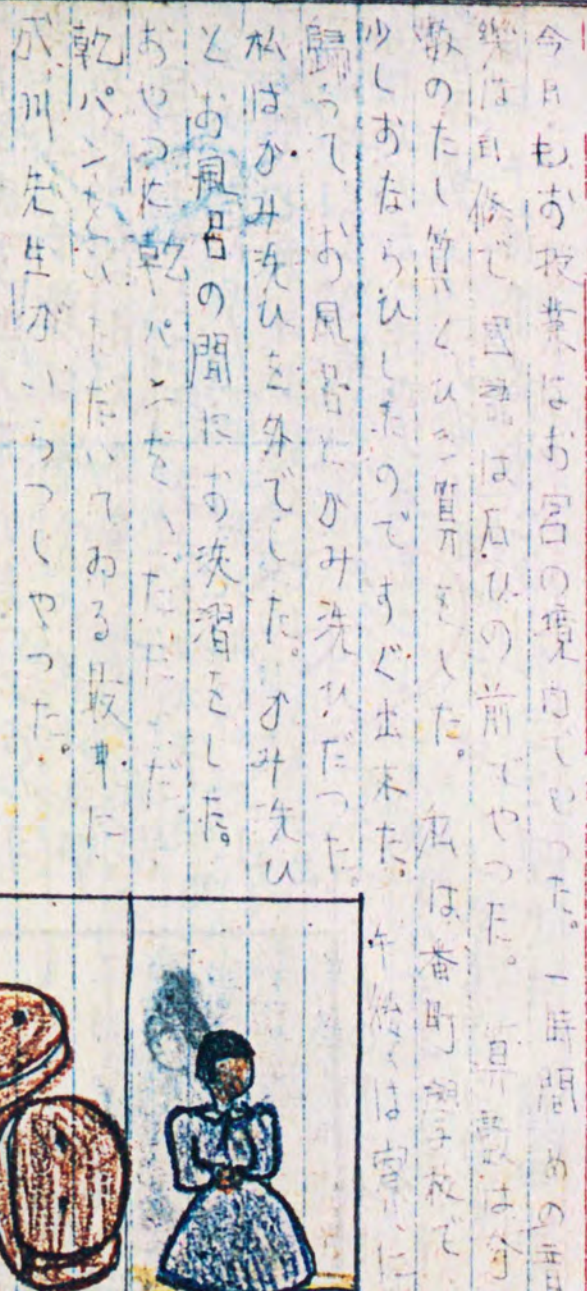 今日もお授業はお宮の境内でやった。一時間めの音
樂は自修で國語は石ひの前でやった。算數は分
數のたし算とひき算をした。私は番町學校で
少しおならひしたのですぐ出来た。午後は寮に
歸って、お風呂とかみ洗ひだった。
私はかみ洗ひを外でした。かみ洗ひ
とお風呂の間にお洗濯をした。
おやつに乾パンをいただいた。
乾パンをいただいてゐる最中に
成川先生がいらつしやつた。